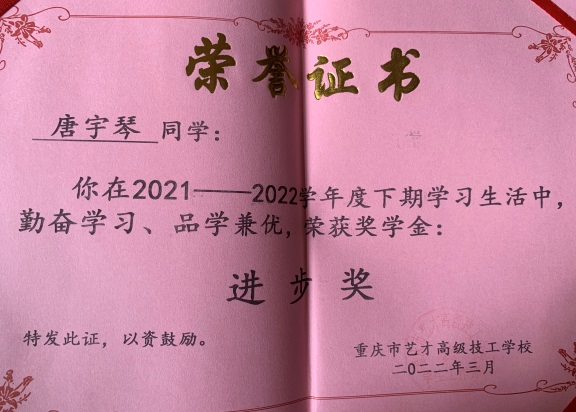 荣誉证书
唐宇琴 同学：
你在2021——2022学年度下期学习生活中，
勤奋学习、品学兼优，荣获奖学金：
进步奖
特发此证，以资鼓励。
重庆市艺才高级技工学校
二〇二二年三月